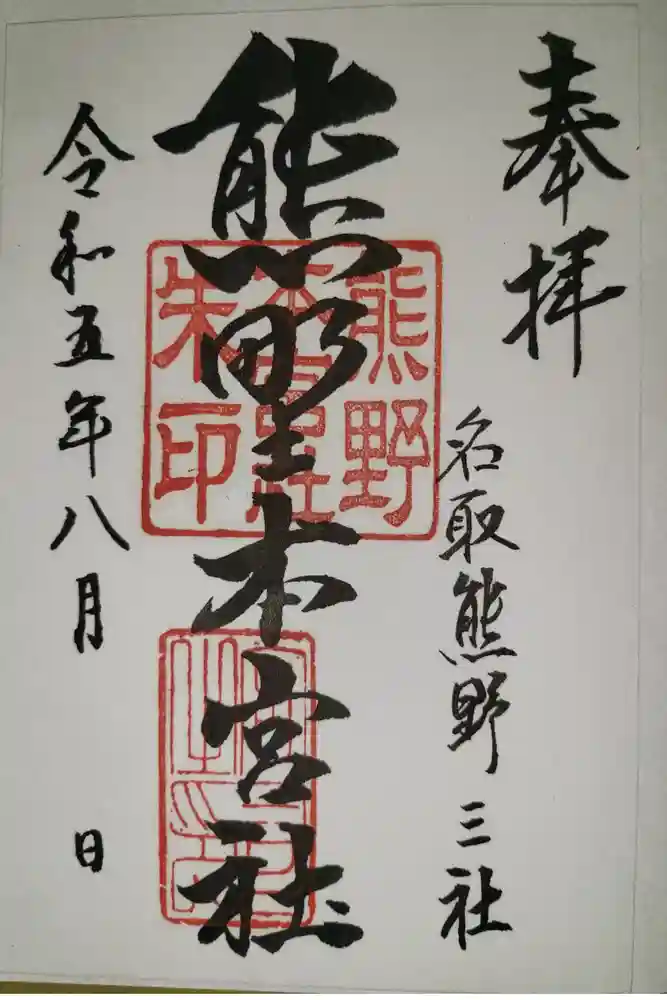 奉拝
名取熊野三社
熊野本宮社
熊野
本宮社
朱印
令和五年八月　日